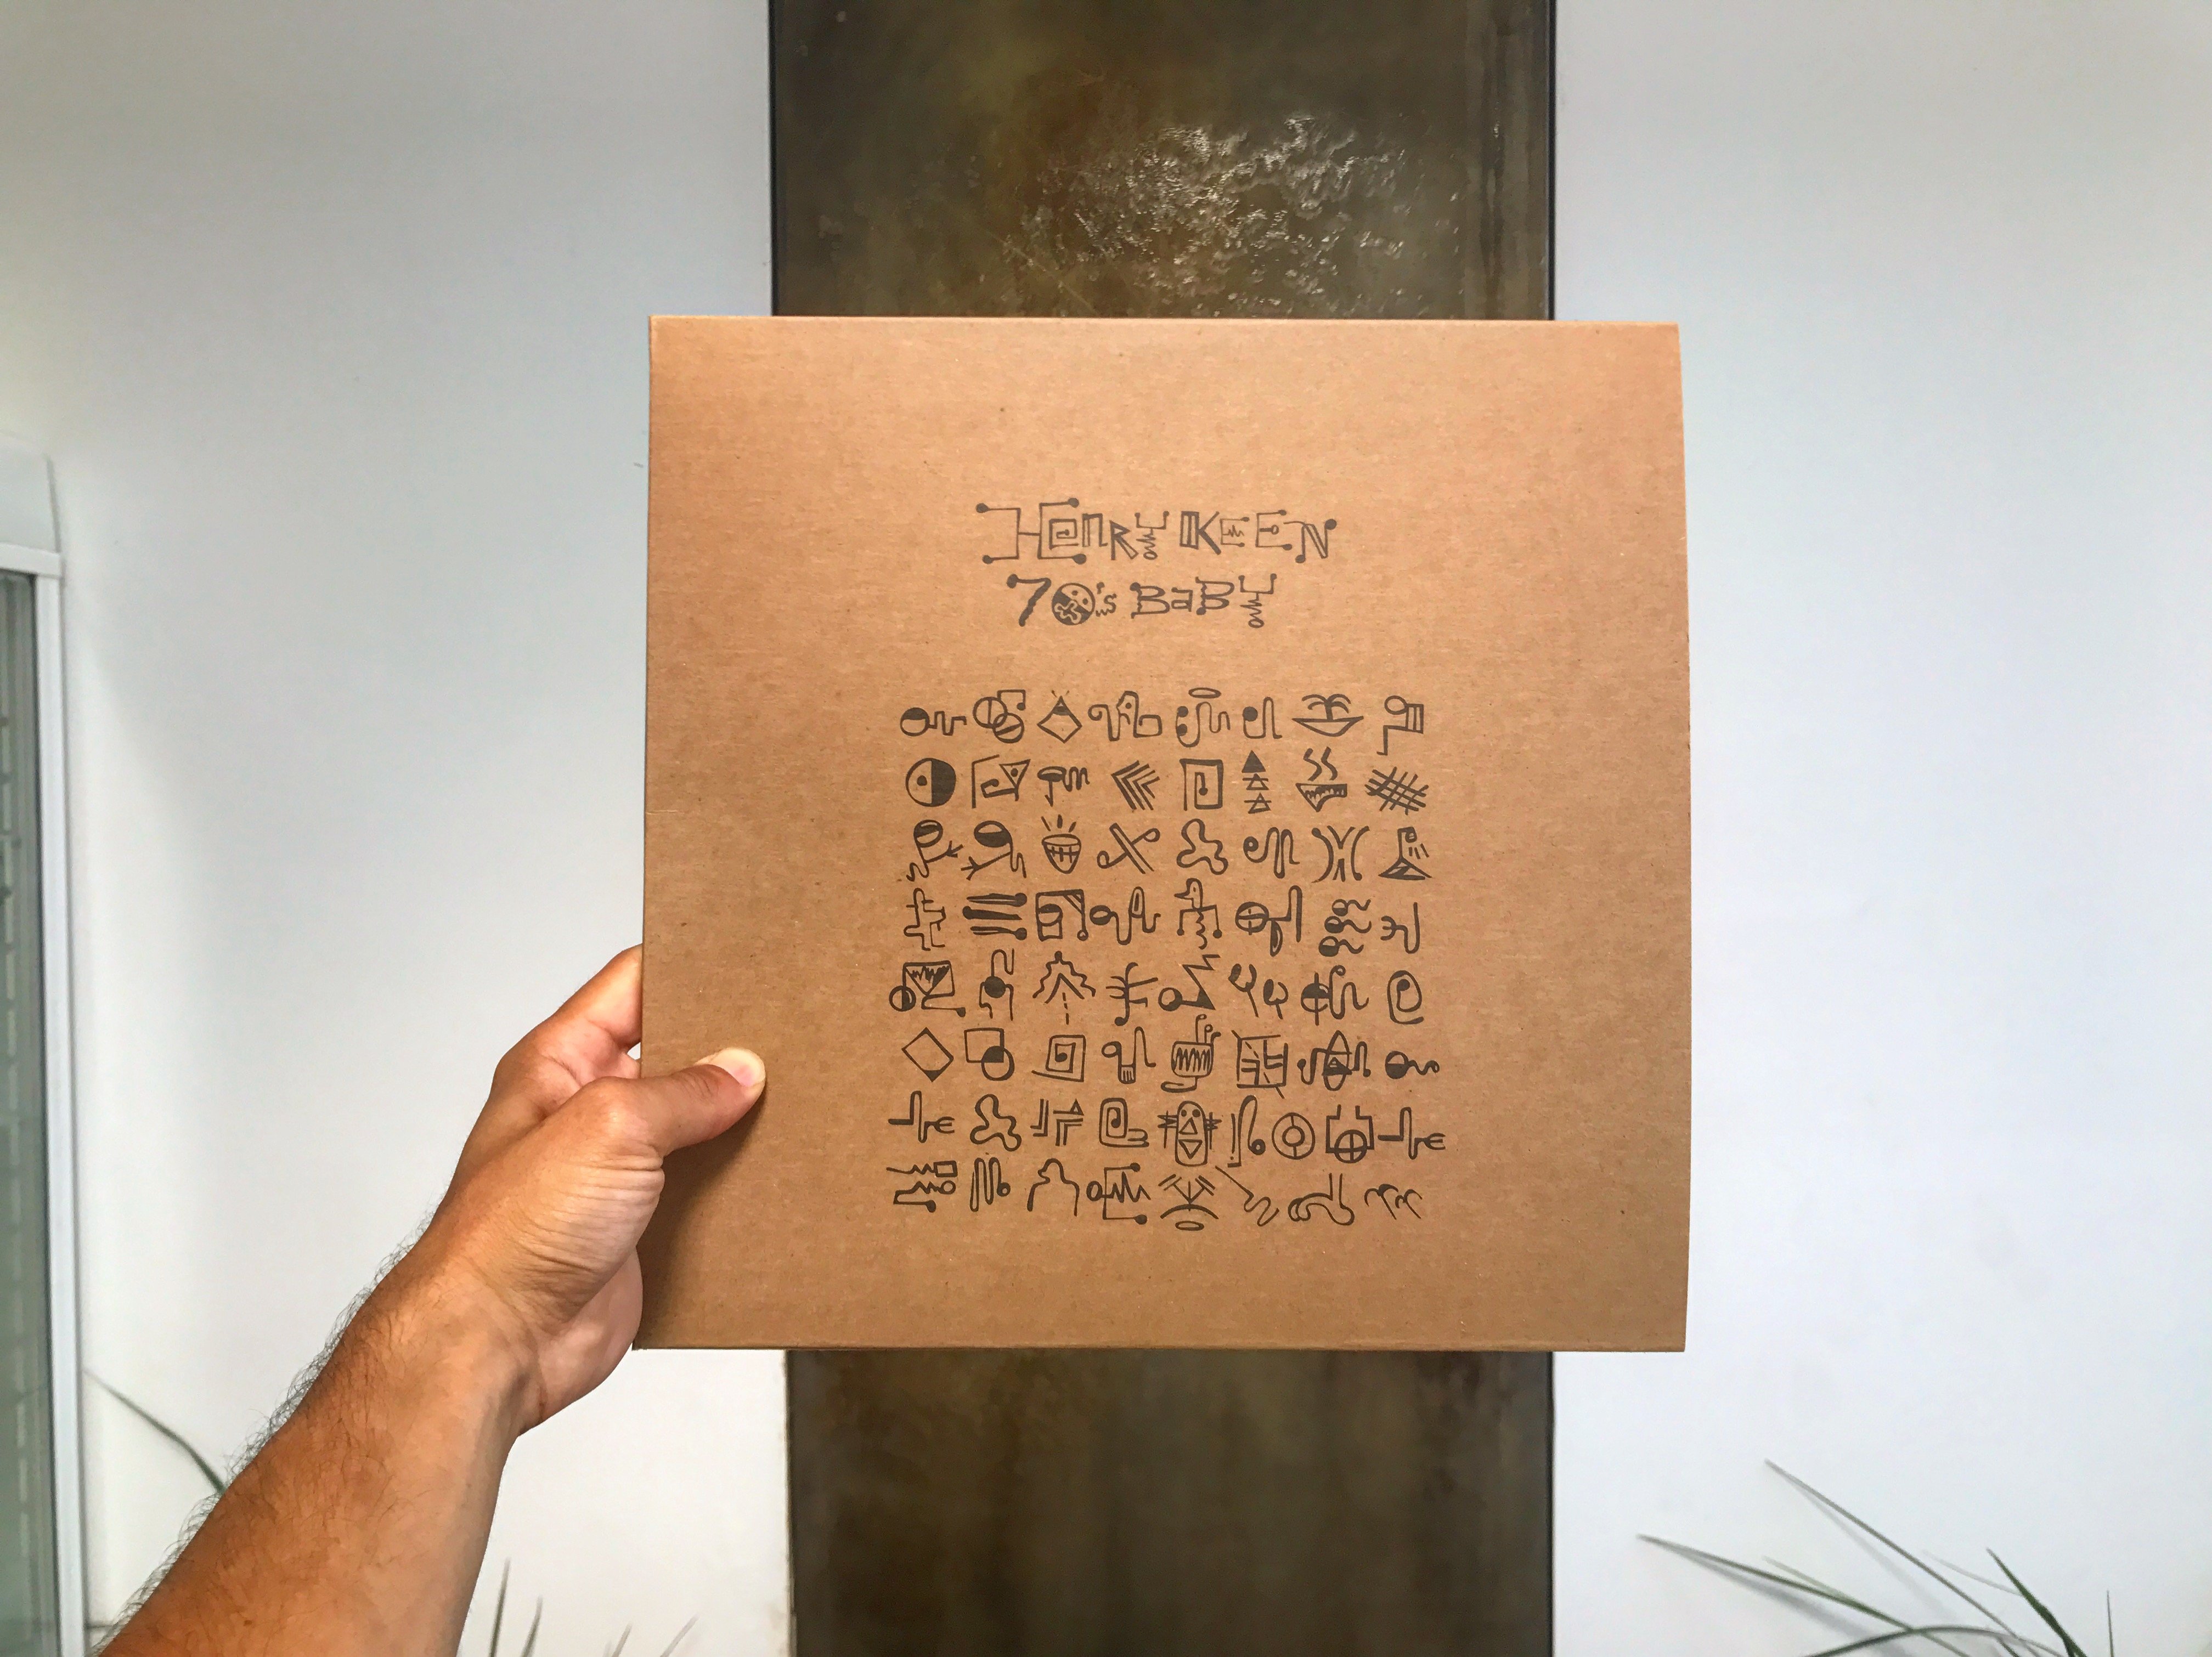 HenRY KEEN
70's BaBY